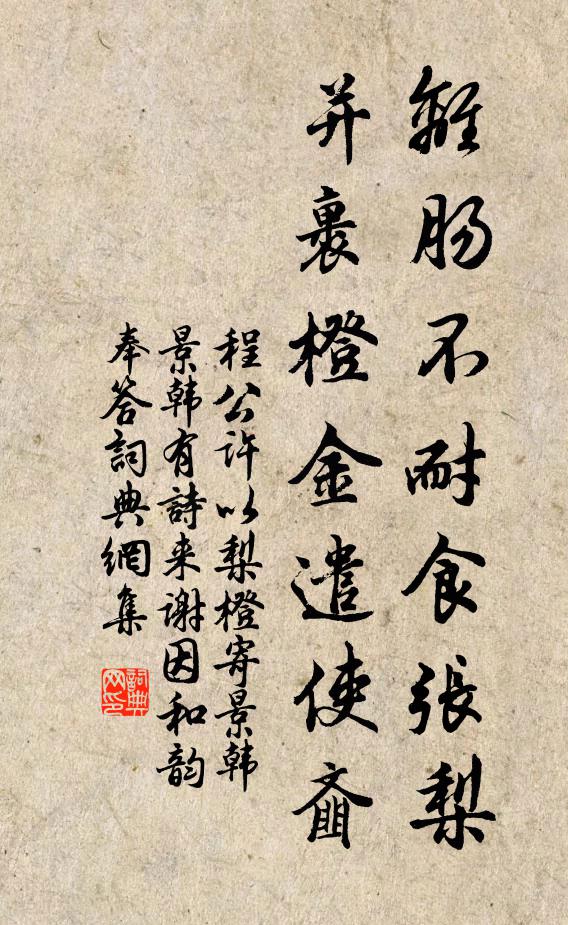 離腸不耐食張梨
并裹橙金遣使齑
程公許以梨橙寄景韩
景韩有詩来謝因和韵
奉答詞典網集
詞典
网印